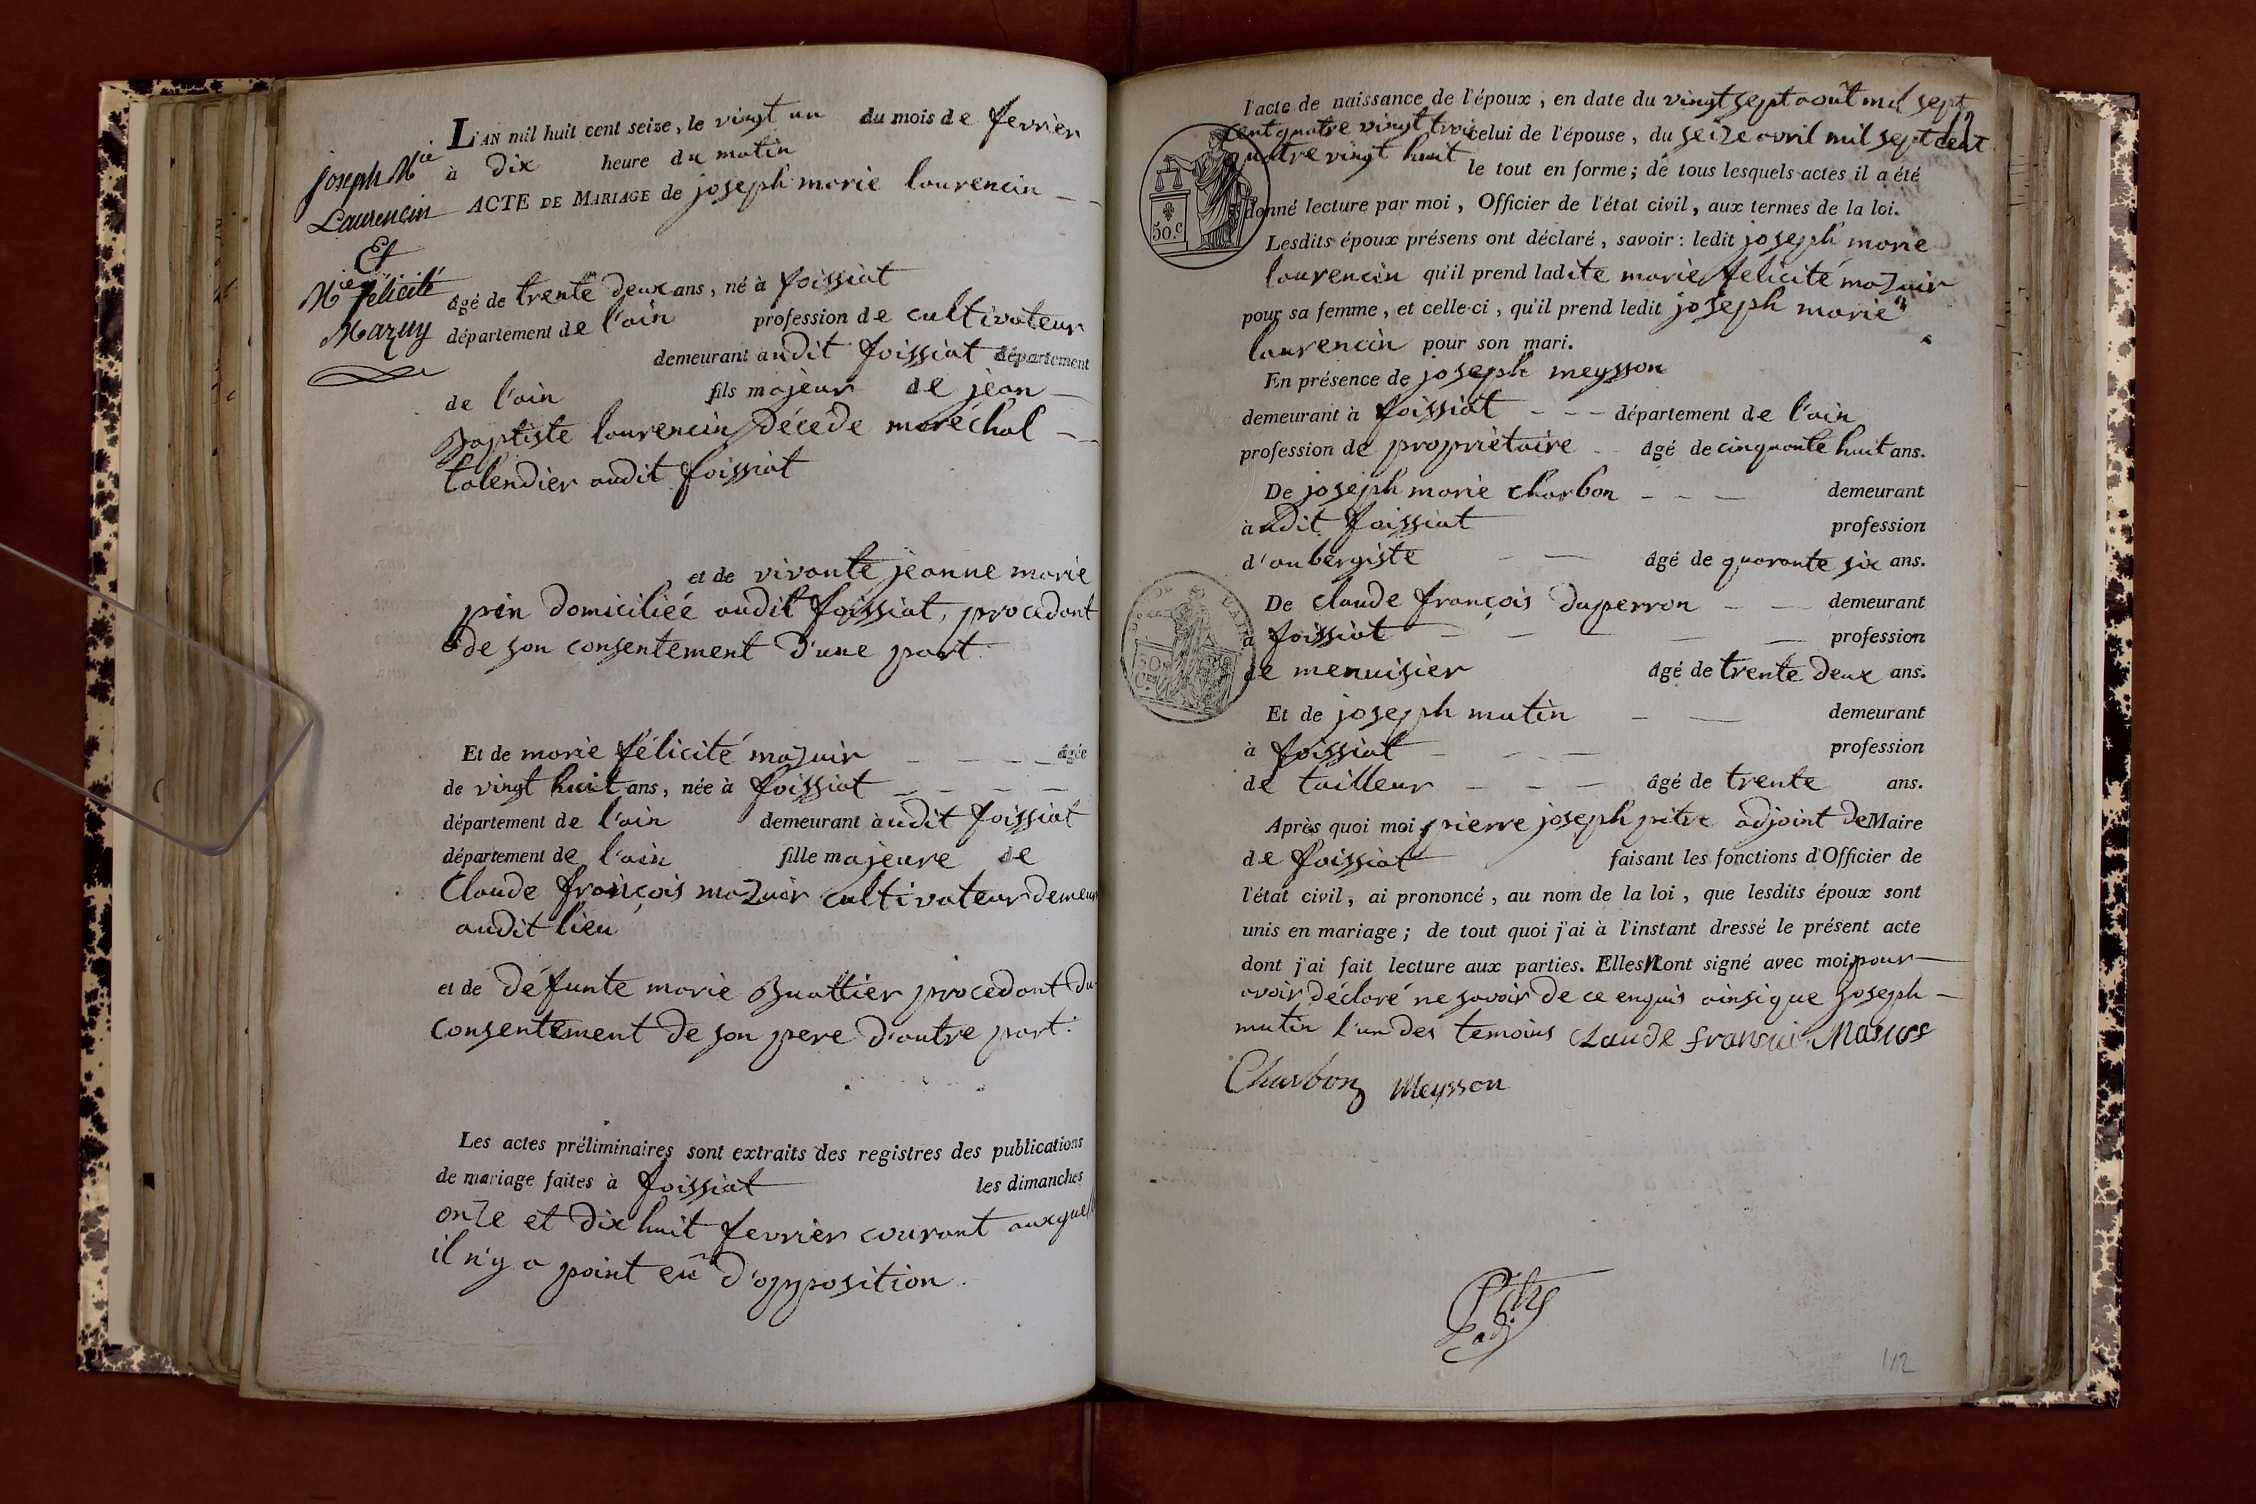 L'AN mil huit cent seize, le vingt un du mois de fevrier
à dix heure du matin
ACTE DE MARIAGE de joseph marie laurencin
joseph Mie
Laurencin
Et
Mie félicité
Mazuy
âgé de trente deux ans, né à foissiat
département de l'ain profession de cultivateur
demeurant audit foissiat département
de l'ain fils majeur de jean
Baptiste laurencin décédé maréchal
talendier audit foissiat
et de vivante jeanne marie
pin domiciliée audit foissiat, procedant
de son consentement d'une part.
Et de marie félicité mazuir âgée
de vingt huit ans, née à foissiat
département de l'ain demeurant audit foissiat
département de l'ain fille majeure de
Claude françois mazuir cultivateur demeur
audit lieu
et de défunte marie Buattier procedant du
consentement de son pere d'autre part.
Les actes préliminaires sont extraits des registres des publications
de mariage faites à foissiat les dimanches
onze et dix huit fevrier courant auxquell
il n'y a point eû d'opposition.
l'acte de naissance de l'époux, en date du vingt sept août mil sept
cent quatre vingt trois celui de l'épouse, du seize avril mil sept cent
quatre vingt huit le tout en forme; de tous lesquels actes il a été
donné lecture par moi, Officier de l'état civil, aux termes de la loi.
50.c
Lesdits époux présens ont déclaré, savoir: ledit joseph marie
laurencin qu'il prend ladite marie félicité mazuir
pour sa femme, et celle-ci, qu'il prend ledit joseph marie
laurencin pour son mari.
En présence de joseph meysson
demeurant à foissiat département de l'ain
profession de propriétaire âgé de cinquante huit ans.
De joseph marie charbon demeurant
audit foissiat profession
d'aubergiste âgé de quarante six ans.
De claude françois duperron demeurant
à foissiat profession
de menuisier âgé de trente deux ans.
Et de joseph mutin demeurant
à foissiat profession
de tailleur âgé de trente ans.
Après quoi moi pierre joseph pitre adjoint de Maire
de foissiat faisant les fonctions d'Officier de
l'état civil, ai prononcé, au nom de la loi, que lesdits époux sont
unis en mariage; de tout quoi j'ai à l'instant dressé le présent acte
dont j'ai fait lecture aux parties. Elles n'ont signé avec moi pour
avoir déclaré ne savoir de ce enquis ainsi que joseph
mutin l'un des temoins claude fransui
Charbon Meysson
112